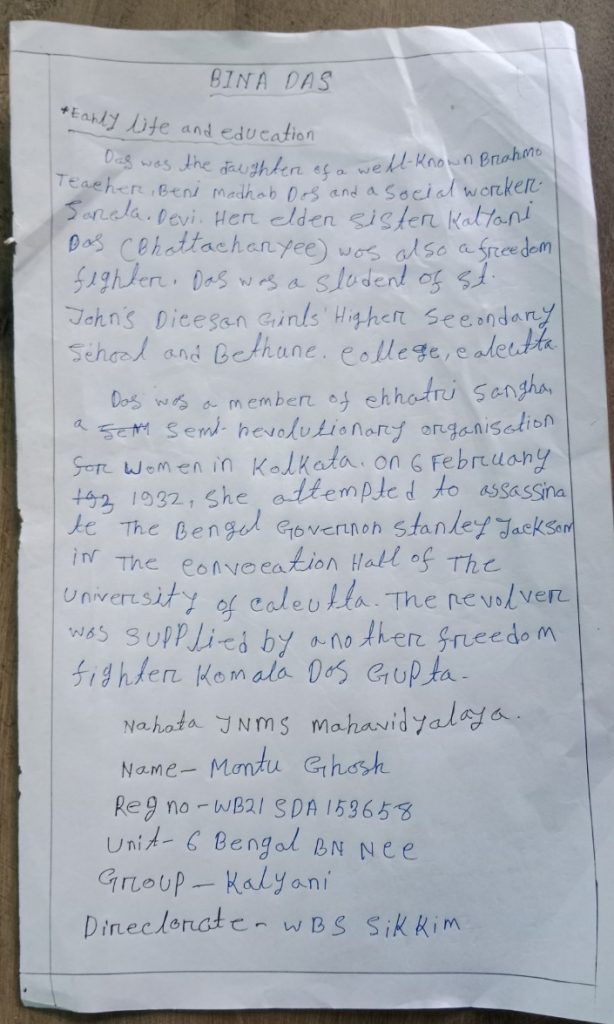 BINA DAS
*Early life and education
Das was the daughter of a well-known Brahmo
Teacher, Beni madhab Das and a social worker.
Sarala. Devi. Her elder sister Kalyani
Das (Bhattacharyee) was also a freedom
fighter. Das was a student of st.
John's Dicesan Girls' Higher Secondary
School and Bethune. College, calcutta
Das was a member of chhatri sangha,
a sem semi-revolutionary organisation
for women in Kolkata. on 6 February
193 1932, She attempted to assassina
te The Bengal Governor Stanley Jackson
in The convocation Hall of The
University of calcutta. The revolver
was supplied by another freedom
fighter Komala Das Gupta.
Nahata JNMS mahavidyalaya.
Name - Montu Ghosh
Reg no - WB21 SDA 153658
Unit - 6 Bengal BN NCC
Group - Kalyani
Directorate - WBS Sikkim